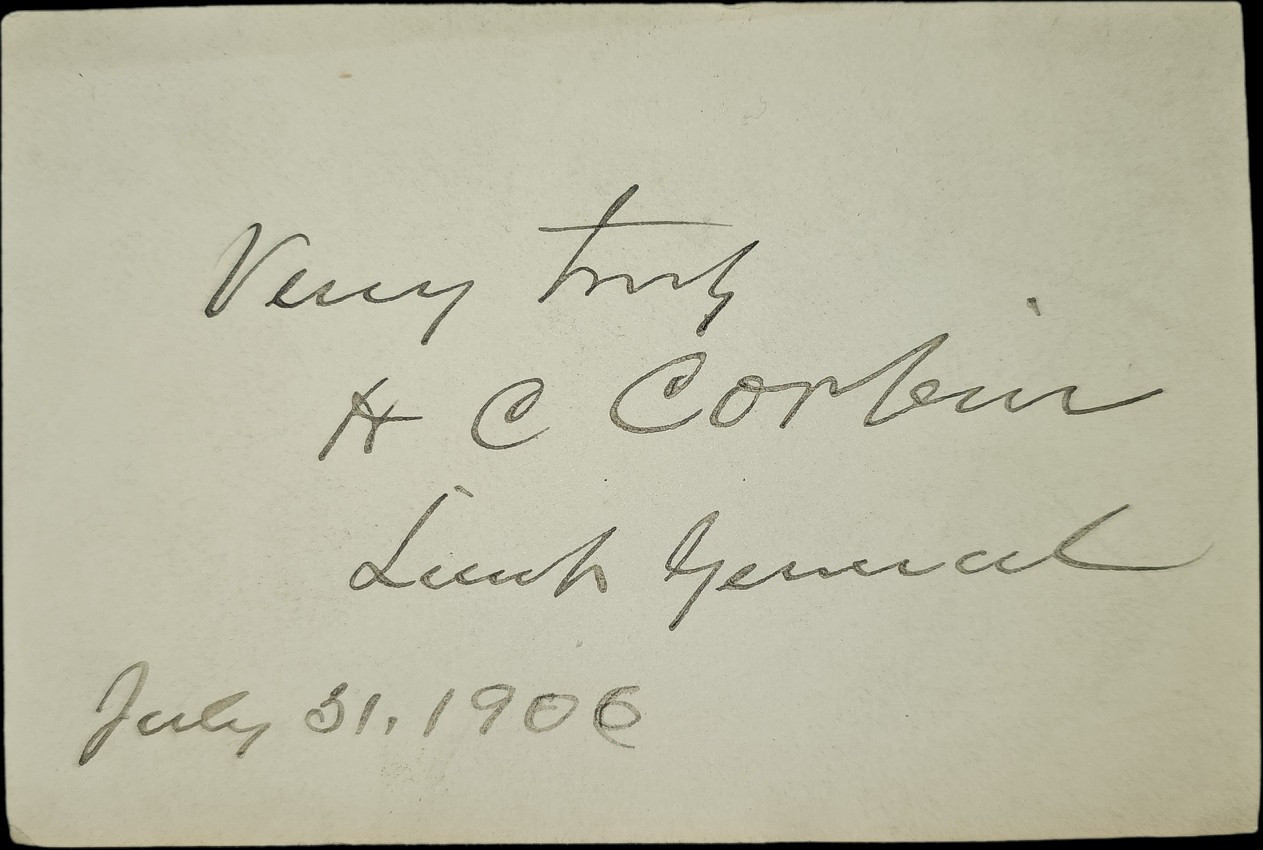 Very truly
H C Corbin
Lieut General
July 31, 1906